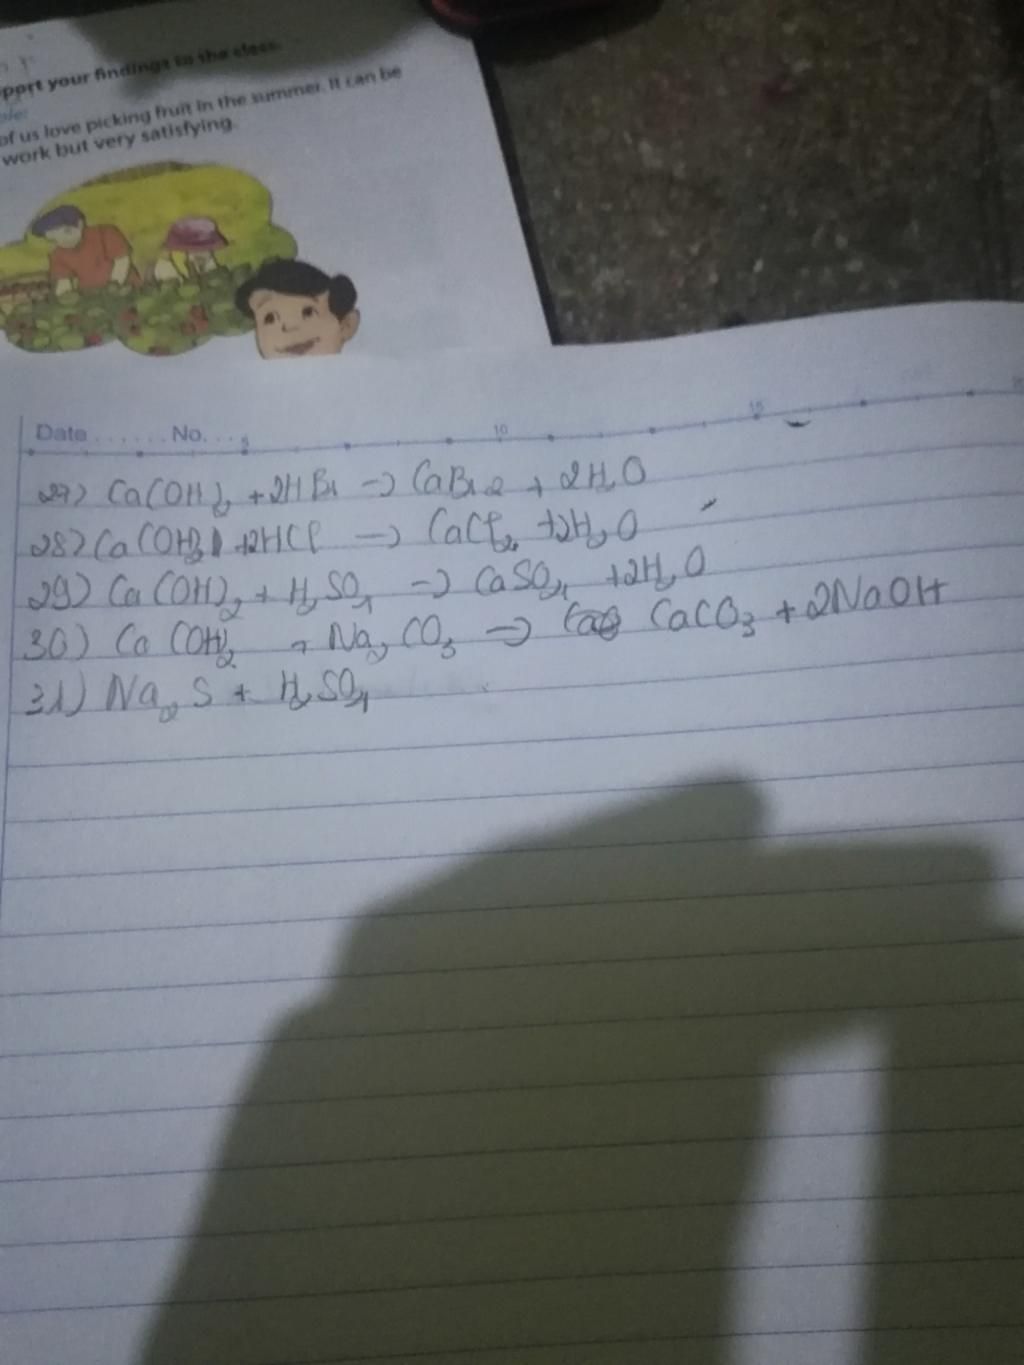 port your findings to the class.
ple:
of us love picking fruit in the summer. It can be
work but very satisfying.
Date ...... No. ... 5
10
15
27) Ca(OH)₂ + 2HBr → CaBr₂ + 2H₂O
28) Ca(OH)₂ + 2HCl → CaCl₂ + 2H₂O
29) Ca(OH)₂ + H₂SO₄ → CaSO₄ + 2H₂O
30) Ca(OH)₂ + Na₂CO₃ → CaCO₃ + 2NaOH
31) Na₂S + H₂SO₄